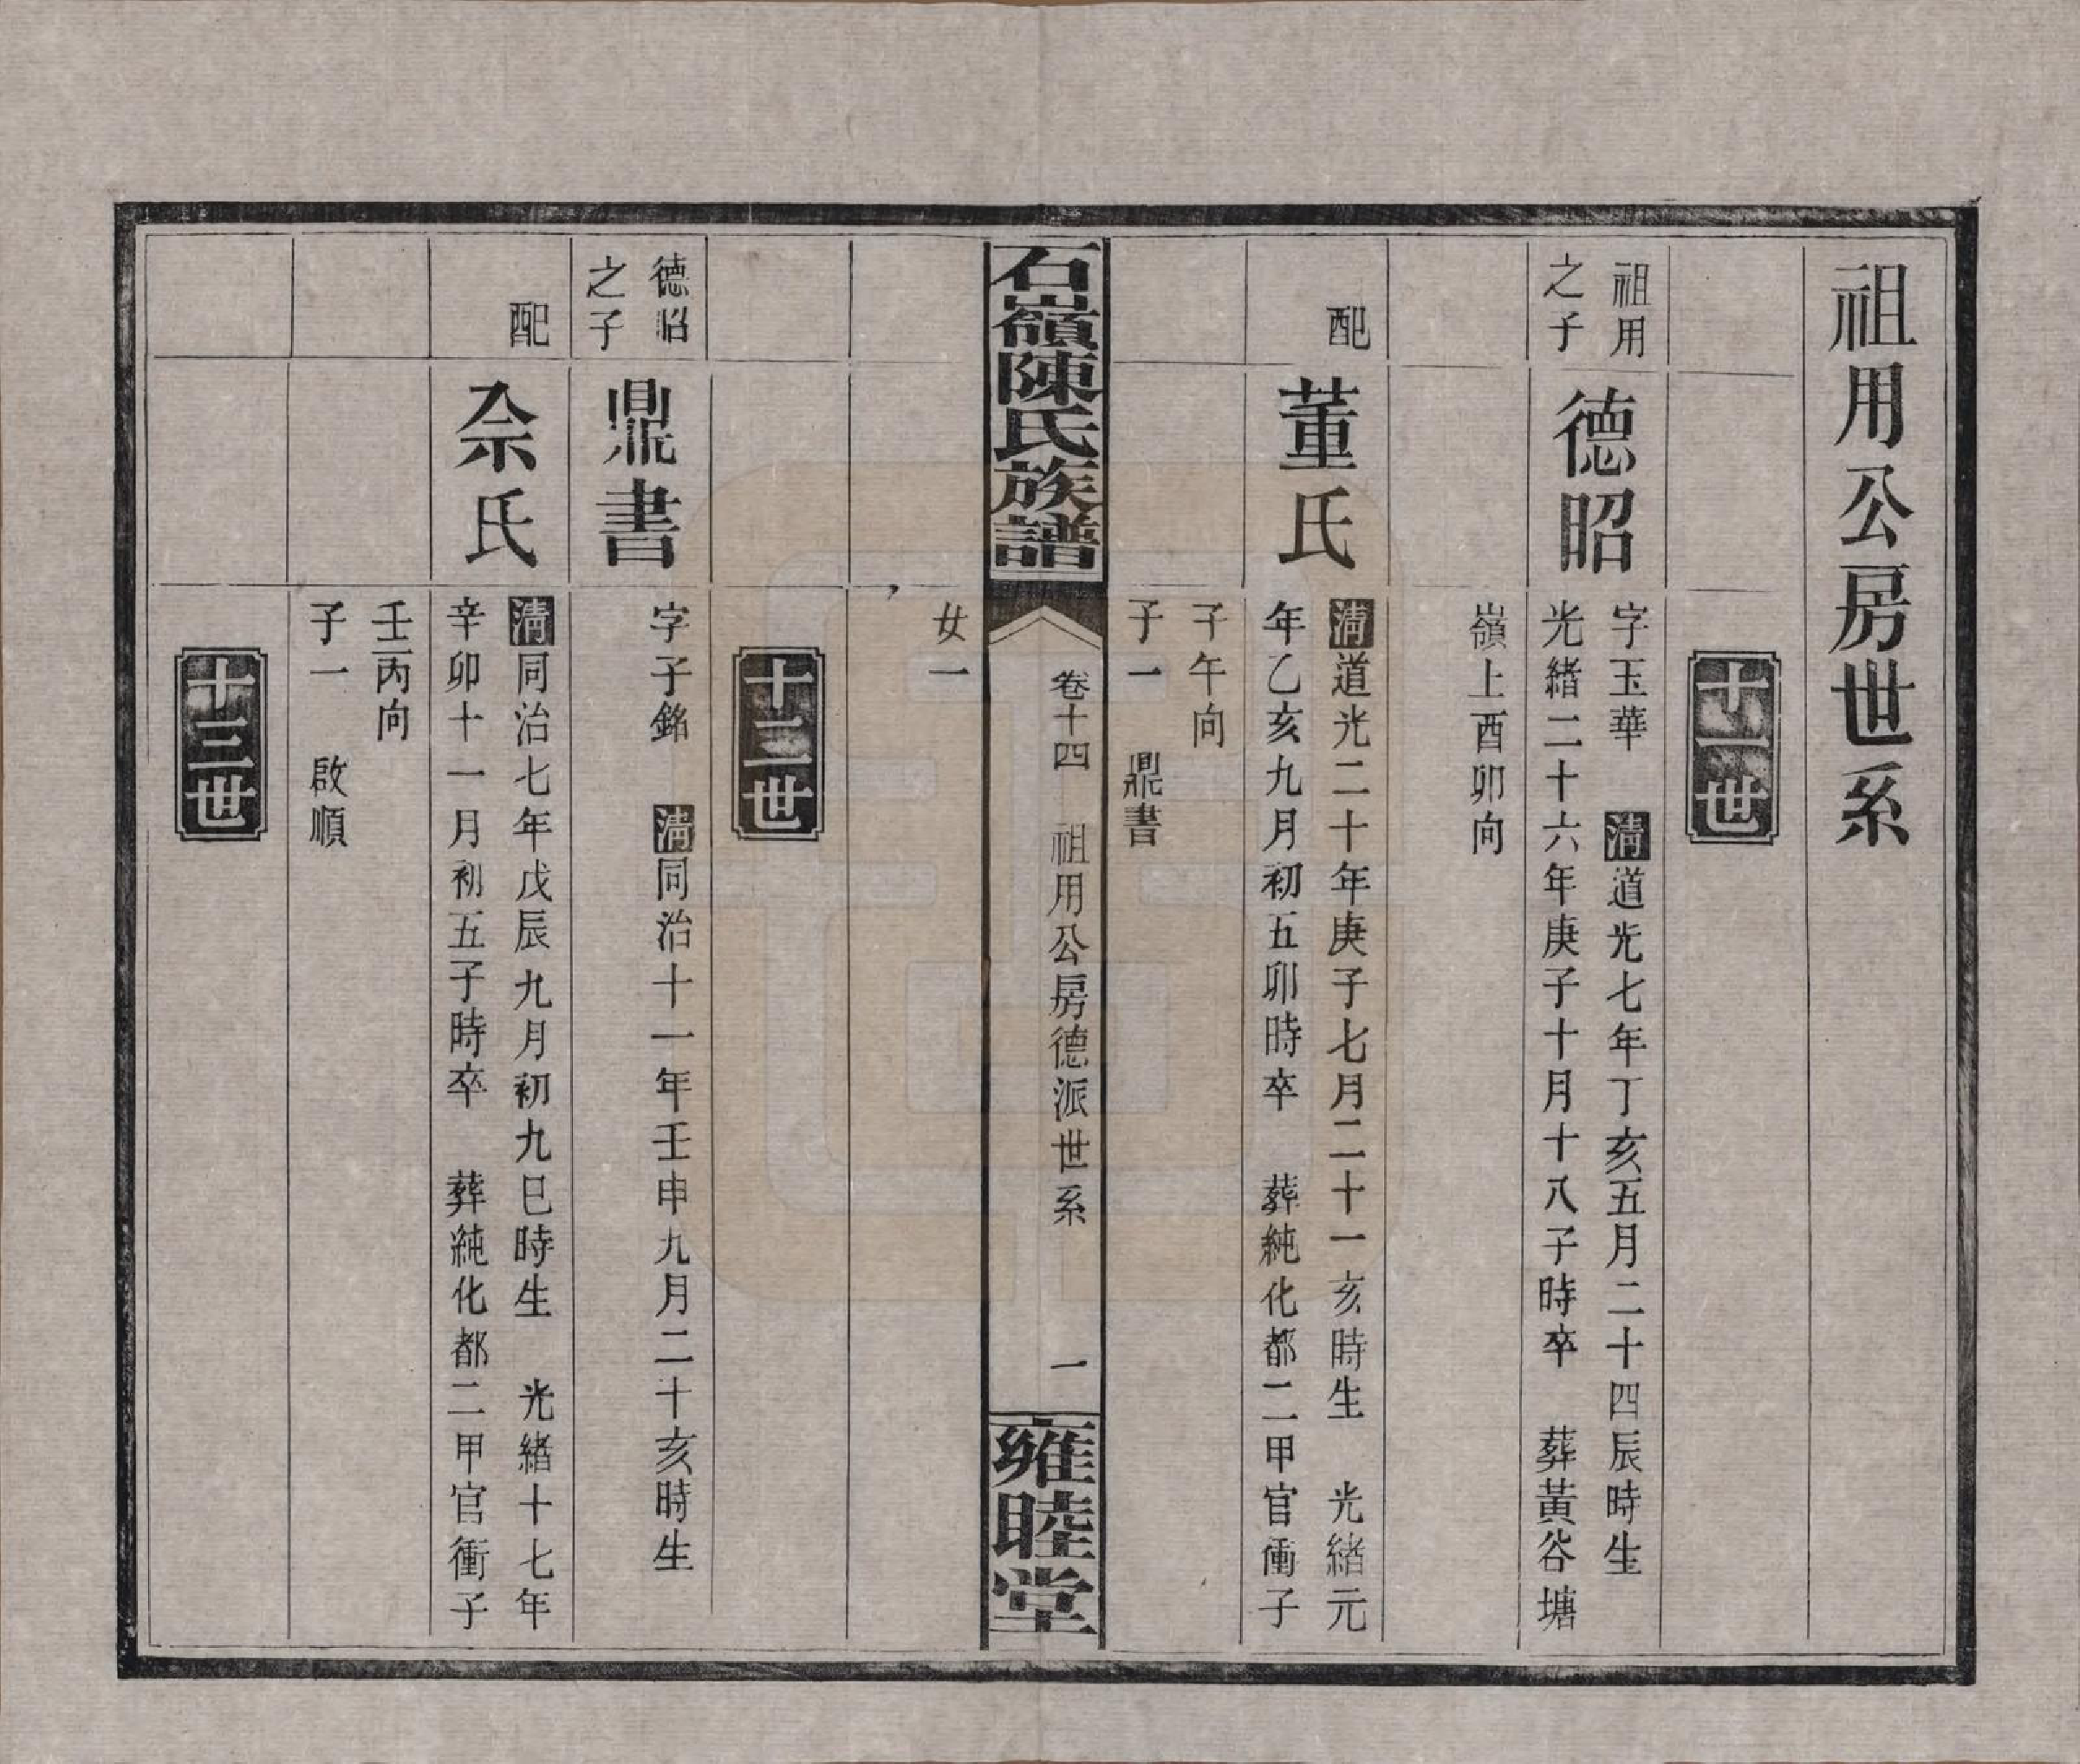 祖用公房世系
十一世
祖用之子
德昭
字玉華　清道光七年丁亥五月二十四辰時生
光緒二十六年庚子十月十八子時卒　葬黃谷塘
嶺上酉卯向
配
董氏
清道光二十年庚子七月二十一亥時生　光緒元
年乙亥九月初五卯時卒　葬純化都二甲官衝子
子午向
子一　鼎書
石嶺陳氏族譜
卷十四　祖用公房德派世系　一
雍睦堂
女一
十二世
德昭之子
鼎書
字子銘　清同治十一年壬申九月二十亥時生
配
佘氏
清同治七年戊辰九月初九巳時生　光緒十七年
辛卯十一月初五子時卒　葬純化都二甲官衝子
壬丙向
子一　啟順
十三世